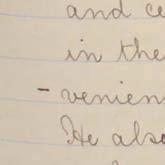 and ce
in the
- venien
He also